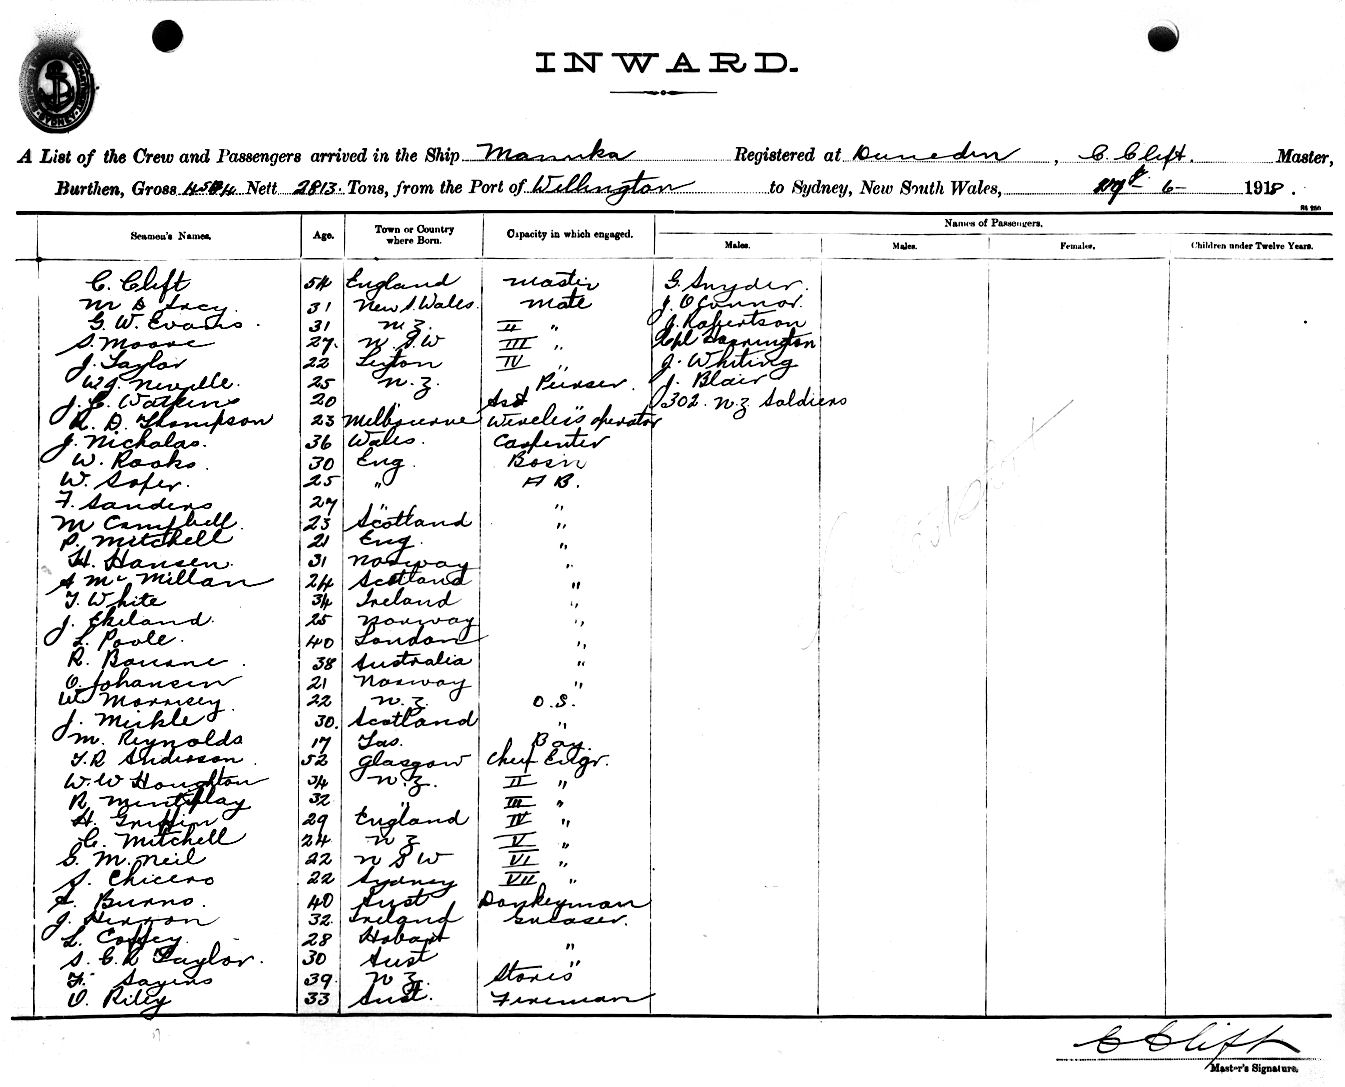 INWARD.
A List of the Crew and Passengers arrived in the Ship Manuka Registered at Dunedin, C. Clift. Master,
Burthen, Gross 4504 Nett 2813. Tons, from the Port of Wellington to Sydney, New South Wales, 6 1918.
Seamen's Names. Age. Town or Country where Born. Capacity in which engaged. Names of Passengers.
Males. Males. Females. Children under Twelve Years.
C. Clift 54 England Master G. Snyder.
31 New S. Wales. Mate J. O'Connor.
G. W. Evans. 31 N.Z. II " J. Robertson
S. Moore 27. N. S. W III " Cpl Harrington
J. Taylor 22 IV " J. Whiting
W. J. Neville. 25 N.Z. Purser. J. Blair
J. C. Watkins 20 " Asst " 302. N Z Soldiers
R. D. Thompson 23 Melbourne Wireless operator
J. Nicholas. 36 Wales. Carpenter
W. Rooks. 30 Eng. Bosin
W. Soper. 25 " A B.
F. Sanders 27 " "
M Campbell. 23 Scotland "
P. Mitchell 21 Eng. "
H. Hansen. 31 Norway "
A McMillan 24 Scotland "
T. White 34 Ireland "
J. Ekeland. 25 Norway "
L. Poole. 40 London "
R. Bourne. 38 Australia "
O. Johansen 21 Norway "
W. Morrisey. 22 N.Z. O.S.
J. Meikle 30. Scotland "
M. Reynolds 17 Tas. Boy.
T. R. Anderson. 52 Glasgow Chief Engr.
W. W Houghton 34 N.Z. II "
R. 32 " III "
H. Griffin 29 England IV "
C. Mitchell 24 N Z V "
G. McNeil 22 N S W VI "
S. Chicero 22 Sydney VII "
A. Burns. 40 Aust Donkeyman
J. 32. Ireland Greaser.
L. Coffey. 28 Hobart "
S. C. L Taylor. 30 Aust "
F. Sayers 39. N Z. Stores
O. Riley 33 Aust. Fireman
C Clift
Master's Signature.